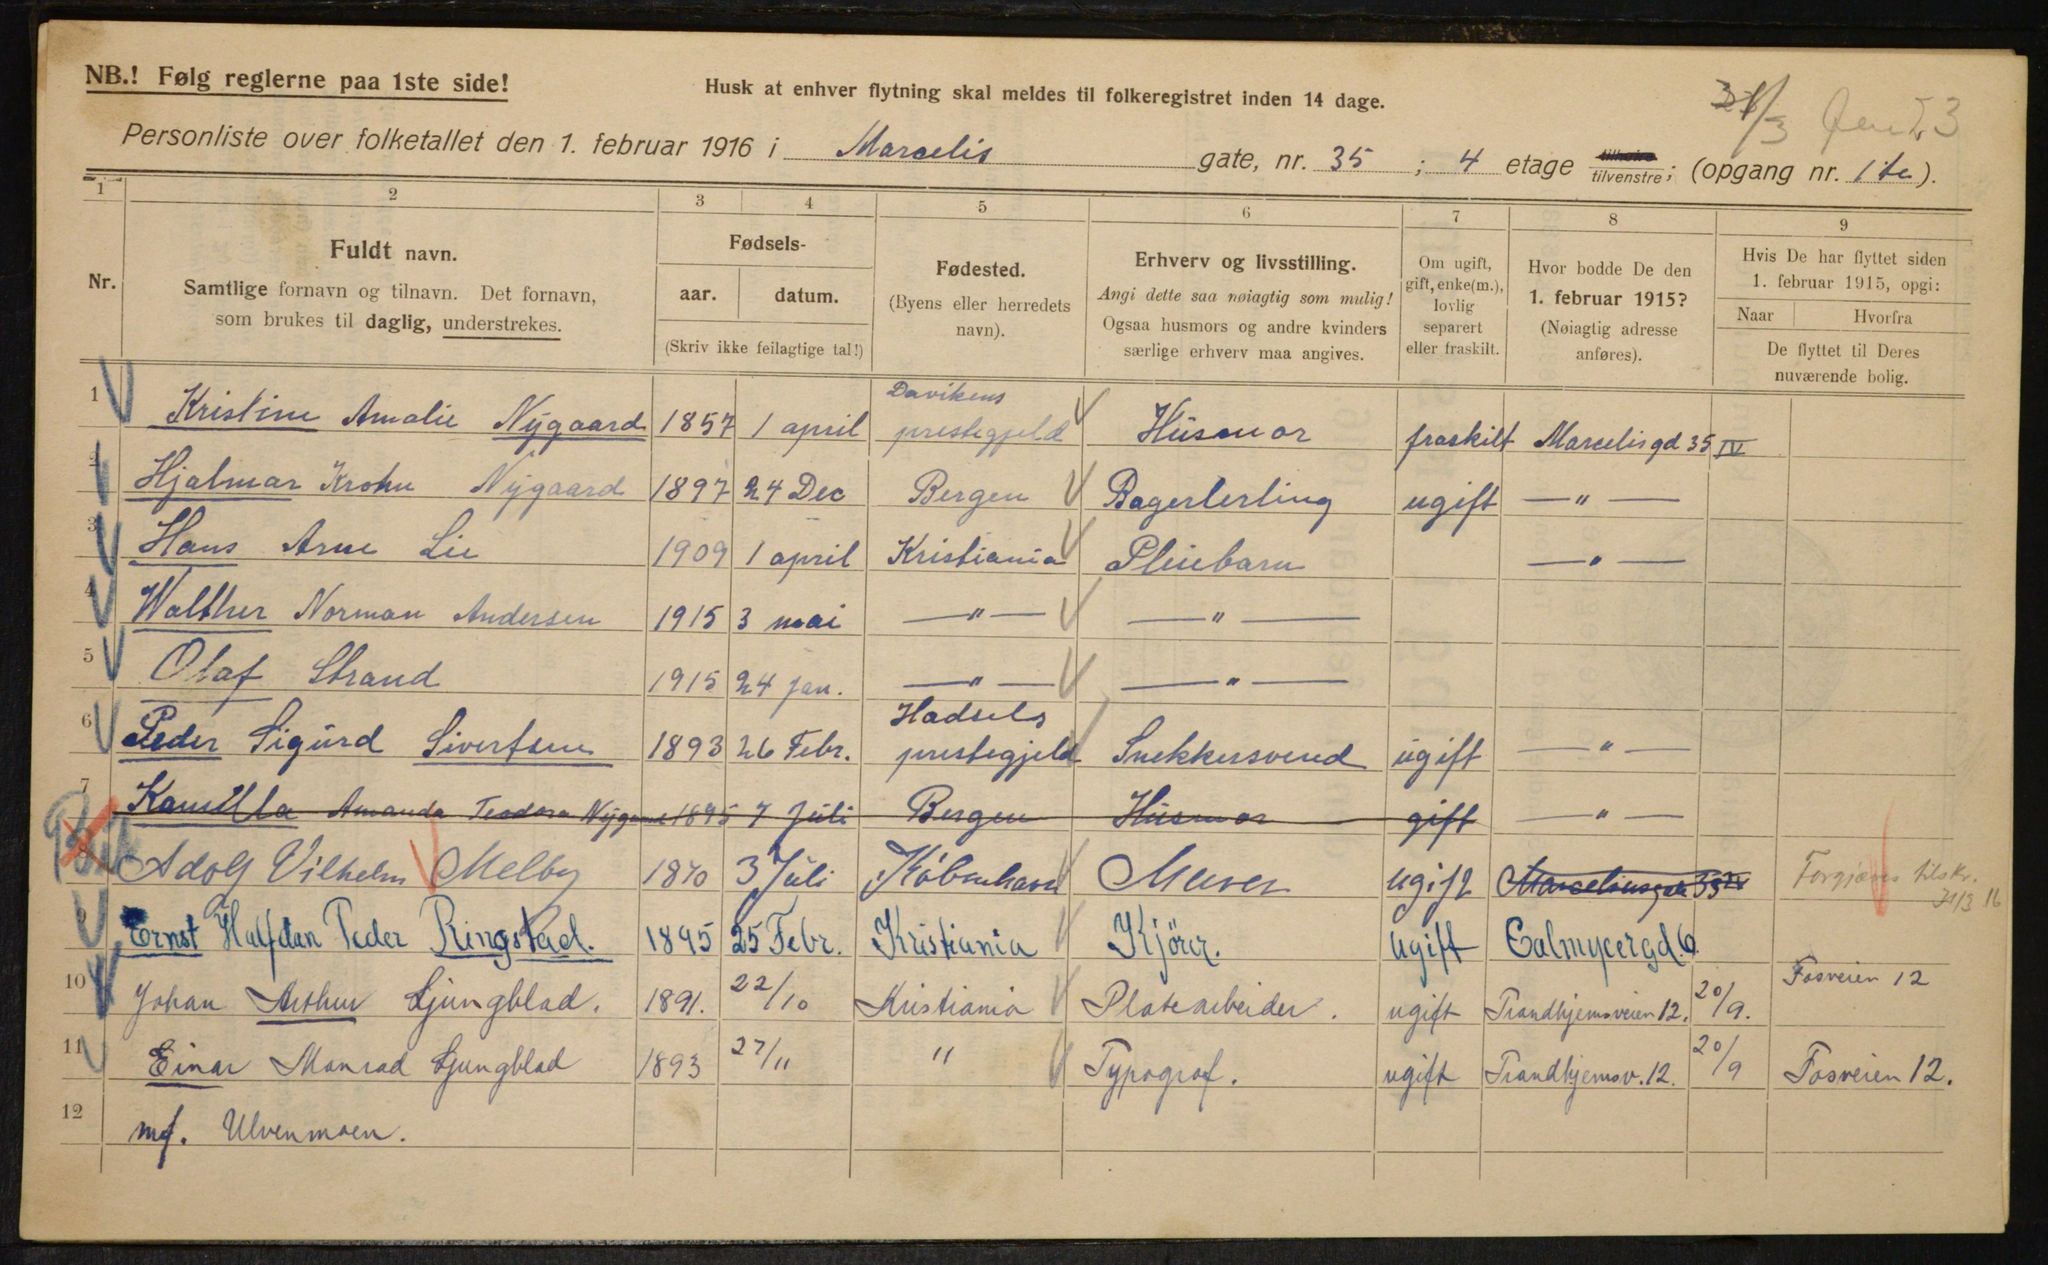 NB.! Følg reglerne paa 1ste side!
Husk at enhver flytning skal meldes til folkeregistret inden 14 dage.
Personliste over folketallet den 1. februar 1916 i Marcelis gate, nr. 35; 4 etage tilhøire tilvenstre; (opgang nr. 1ste).
1 2 3 4 5 6 7 8 9
Nr.
Fuldt navn.
Samtlige fornavn og tilnavn. Det fornavn,
som brukes til daglig, understrekes.
Fødsels-
aar. datum.
(Skriv ikke feilagtige tal!)
Fødested.
(Byens eller herredets
navn).
Erhverv og livsstilling.
Angi dette saa nøiagtig som mulig!
Ogsaa husmors og andre kvinders
særlige erhverv maa angives.
Om ugift,
gift, enke(m.),
lovlig
separert
eller fraskilt.
Hvor bodde De den
1. februar 1915?
(Nøiagtig adresse
anføres).
Hvis De har flyttet siden
1. februar 1915, opgi:
Naar Hvorfra
De flyttet til Deres
nuværende bolig.
1 Kristine Amalie Nygaard 1857 1 april Davikens prestegjeld Husmor fraskilt Marcelisgd 35 IV
2 Hjalmar Krohn Nygaard 1897 24 Dec Bergen Bagerlerling ugift — " —
3 Hans Arne Lie 1909 1 april Kristiania Pleiebarn — " —
4 Walther Norman Andersen 1915 3 mai — " — — " —
5 Olaf Strand 1915 24 jan. — " — — " —
6 Peder Sigurd Sivertsen 1893 26 Febr. Hadsels prestegjeld Snekkersvend ugift — " —
7 Kamilla Amanda Teodora Nygaard 1895 7 Juli Bergen Husmor gift — " —
8 Adolf Vilhelm Melby 1870 3 Juli Købnehavn Murer ugift Forgjæves tilskr. 31/3 16
9 Ernst Halfdan Peder Ringstad. 1895 25 Febr. Kristiania Kjörer. ugift Calmyergd. 6
10 Johan Arthur Ljungblad. 1891. 22/10 Kristiania Platearbeider. ugift Trondhjemsveien 12. 20/9. Fosveien 12
11 Einar Monrad Ljungblad 1893 27/11 " Typograf. ugift Trondhjemsv. 12. 20/9 Fosveien 12.
12 mf. Ulvenmoen.